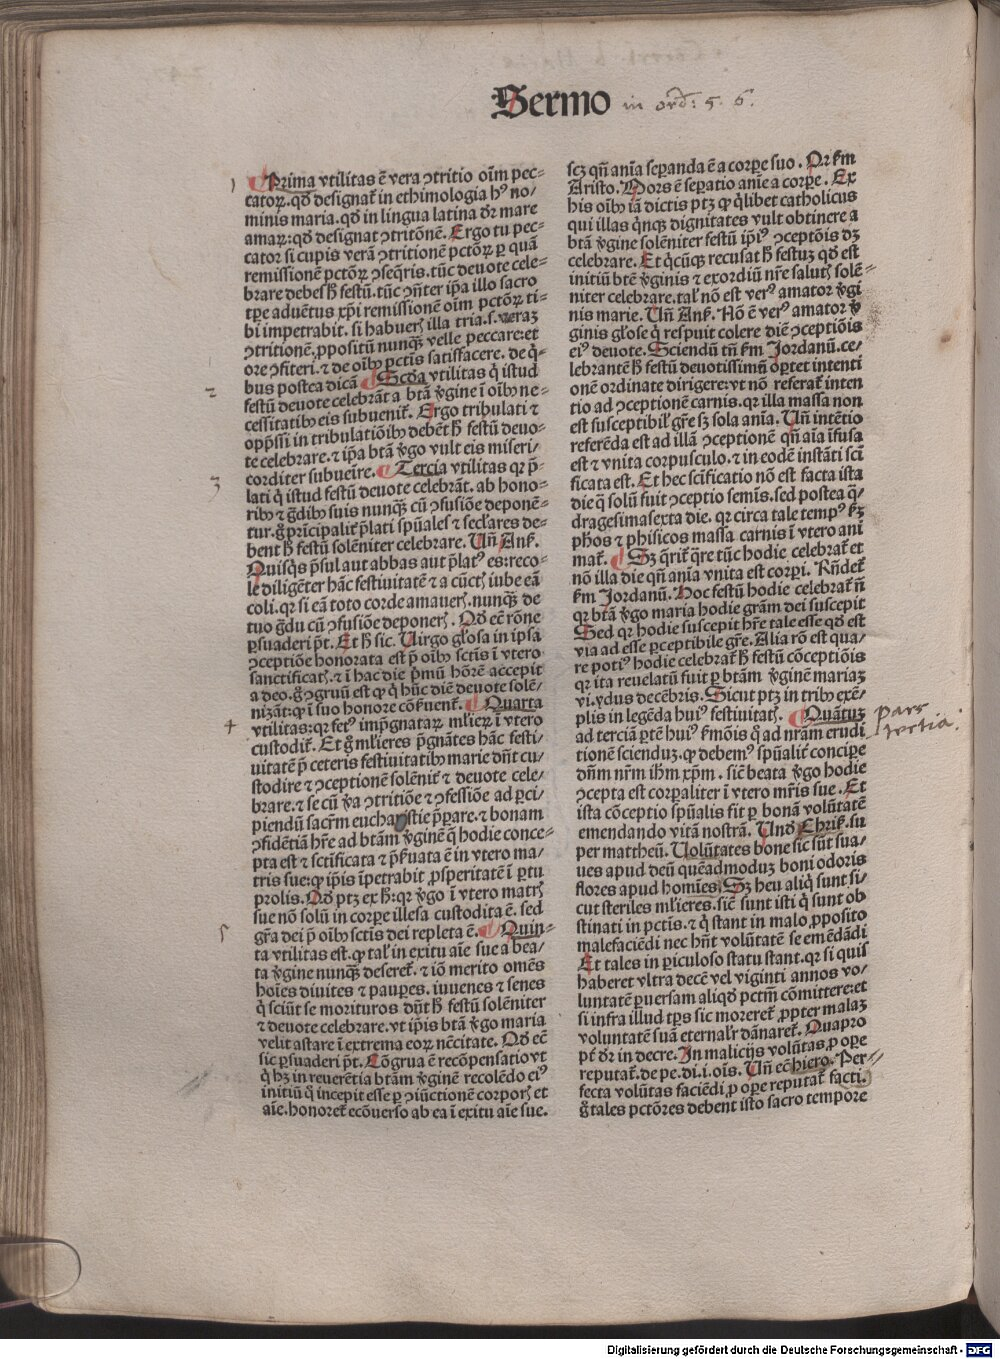 Sermo in ord: 5. 6.
1
Prima vtilitas ē vera ↄtritio oīm pec⸗
catoꝝ. qd̓ designat̄ in ethimologia hꝰ no/
minis maria. qd̓ in lingua latina dr̄ mare
amaꝝ: qd̓ designat ↄtritōnē. Ergo tu pec⸗
cator si cupis verā ↄtritionē pctōꝝ ꝑ quā
remissionē pctōꝝ ↄseq̄ris. tūc deuote cele⸗
brare debes h̄ festū. tūc ꝯn̄ter ip̄a illo sacro
tꝑe aduētus xp̄i remissionē oīm pctōꝝ ti⸗
bi impetrabit. si habueꝭ illa tria. s. veraꝫ
ↄtritionē, ꝓpositū nunqꝫ̄ velle peccare: et
ore ↄfiteri. ⁊ de oībꝫ pctīs satisfacere. de q̄⸗
2
bus postea dicā Scd̓a vtilitas q̇ istud
festū deuote celebrāt a btā v̓gine ī oībꝫ ne⸗
cessitatibꝫ eis subuenit̄. Ergo tribulati ⁊
opp̄ssi in tribulatiōibꝫ debēt h̄ festū deuo⸗
te celebrare. ⁊ ip̄a btā v̓go vult eis miseri/
corditer subueīre. Tercia vtilitas qꝛ p̄⸗
3
lati q̇ istud festū deuote celebrāt. ab hono/
ribꝫ ⁊ gd̄ibꝫ suis nunqꝫ̄ cū ↄfusiōe deponē⸗
tur. g̊ pr̄incipalit̄ p̄lati spūales ⁊ sectares de⸗
bent h̄ festū solēniter celebrare. Vn̄ Anẜ.
Quisqs p̄sul aut abbas aut p̄latꝰ es: reco⸗
le diligēter hāc festiuitatē ⁊ a cūctꝭ iube eā
coli. qꝛ si eā toto corde amaueꝭ. nunqꝫ̄ de
tuo gd̄u cū ↄfusiōe deponeꝭ. Qd̓ ec̄ rōne
ꝑsuaderi pt̄. Et h̄ sic. Virgo glōsa in ipsa
ↄceptiōe honorata est p̄ oībꝫ sctīs ī vtero
sanctificatꝭ. ⁊ ī hac die p̄mū hōrē accepit
a deo. g̊ ↄgruū est ꝙ q̇ hūc diē deuote solē/
nizāt: ꝙ ī suo honore cōẜuent̄. Quarta
4
vtilitas: qꝛ fetꝰ imp̄gnataꝝ mlieꝝ ī vtero
custodit̄. Et g̊ mlieres p̄gnātes hāc festi/
uitatē p̄ ceteris festiuitatibꝫ marie dn̄t cu/
stodire ⁊ ↄceptionē solēnit̄ ⁊ deuote cele/
brare. ⁊ se cū v̓a ↄtritiōe ⁊ ↄfessiōe ad ꝑci/
piendū sacr̄m eucharistie p̄ꝑare. ⁊ bonam
ↄfidētiā hr̄e ad btām v̓ginē q̄ hodie conce⸗
pta est ⁊ sctificata ⁊ p̄ẜuata ē in vtero ma/
tris sue: ꝙ ip̄is īpetrabit ꝓsperitatē ī ꝑtu
prolis. Qd̓ ptꝫ ex h̄: qꝛ v̓go ī vtero matꝭ
sue nō solū in corꝑe illesa custodita ē. sed
gr̄a dei p̄ oībꝫ sctīs dei repleta ē. Quin⸗
5
ta vtilitas est. ꝙ tal̄ in exitu aīe sue a bea/
ta v̓gine nunqꝫ̄ deseret̄. ⁊ iō merito omēs
hoīes diuites ⁊ pauꝑes. iuuenes ⁊ senes
q̇ sciūt se morituros dn̄t h̄ festū solēniter
⁊ deuote celebrare. vt ip̄is btā v̓go maria
velit astare ī extrema eoꝝ nēcitate. Qd̓ ec̄
sic ꝑsuaderi pt̄. Cōgrua ē recōpensatio vt
q̇ hꝫ in reuerētia btām v̓ginē recolēdo eiꝰ
initiū q̇ incepit esse ꝑ ↄiūctionē corporꝭ et
aīe. honoret̄ ecōuerso ab ea ī exitu aīe sue.
scꝫ qn̄ anīa seꝑanda ē a corꝑe suo. Qꝛ ẜm
Aristo. Mors ē seꝑatio anīe a corꝑe. Ex
his oībꝫ iā dictis ptꝫ ꝙ q̇libet catholicus
qui illas q̇nqꝫ dignitates vult obtinere a
btā v̓gine solēniter festū ip̄iꝰ ↄceptōis dꝫ
celebrare. Et q̇cūqꝫ recusat h̄ festuꝫ qd̓ est
initiū btē v̓ginis ⁊ exordiū nr̄e salutꝭ solē⸗
niter celebrare. tal̄ nō est verꝰ amator v̓gi
nis marie. Vn̄ Anẜ. Nō ē verꝰ amator v̓
ginis glōse q̇ respuit colere diē ↄceptiōis
eiꝰ deuote. Sciendū tn̄ ẜm Jordanū. ce/
lebrantē h̄ festū deuotissimū oꝑtet intenti
onē ordinate dirigere: vt nō referat̄ inten
tio ad ↄceptionē carnis. qꝛ illa massa non
est susceptibil̄ gr̄e sꝫ sola anīa. Vn̄ intētio
referēda est ad illā ↄceptionē qn̄ aīa īfusa
est ⁊ vnita corpusculo. ⁊ in eodē instāti scī
ficata est. Et hec scīficatio nō est facta ista
die q̄ solū fuit ↄceptio semīs. sed postea q̄/
dragesimasexta die. qꝛ circa tale tempꝰ ẜꝫ
ph̄os ⁊ phisicos massa carnis ī vtero ani
mat̄. Sꝫ q̄rit̄ q̄re tūc hodie celebrat̄ et
nō illa die qn̄ anīa vnita est corpori. Rn̄det̄
ẜm Jordanū. Hoc festū hodie celebrat̄ n̄
qꝛ btā v̓go maria hodie grām dei suscepit
Sed qꝛ hodie suscepit hr̄e tale esse qd̓ est
via ad esse ꝑceptibile gr̄e. Alia rō est qua/
re potiꝰ hodie celebrat̄ h̄ festū cōceptiōis
qꝛ ita reuelatū fuit ꝑ btām v̓ginē mariaꝫ
vi. ydus decēbris. Sicut ptꝫ in tribꝫ exē/
plis in legēda huiꝰ festiuitatꝭ. Quātuꝫ
Pars
tertia:
ad terciā ꝑtē huiꝰ ẜmōis q̇ ad nrām erudi
tionē scienduꝫ. ꝙ debemꝰ spūalit̄ concipe
dn̄m nr̄m ihm̄. xp̄m. sic̄ beata v̓go hodie
ↄcepta est corꝑaliter ī vtero mr̄is sue. Et
ista cōceptio spūalis fit ꝑ bonā volūtatē
emendando vitā nostrā. Vnd̓ Ehriẜ. su
per mattheū. Volūtates bone sic sūt sua/
ues apud deū quēadmoduꝫ boni odoris
flores apud homīes. Sꝫ heu aliq̇ sunt si/
cut steriles mlieres. sic̄ sunt isti q̇ sunt ob
stinati in pctīs. ⁊ q̇ stant in malo ꝓposito
malefaciēdi nec hn̄t volūtatē se emēdādi
Et tales in ꝑiculoso statu stant. qꝛ si quis
haberet vltra decē vel viginti annos vo/
luntatē ꝑuersam aliqd̓ pctm̄ cōmittere: et
si infra illud tꝑs sic moreret̄. ꝓpter malaꝫ
voluntatē suā eternal̄r dānaret̄. Quapro
pt̄ dr̄ in decre. In malicijs volūtas ꝓ oꝑe
reputat̄. de pe. di. i. oīs. Vn̄ ec̄ hiero. Per⸗
fecta volūtas faciēdi ꝓ oꝑe reputat̄ facti.
g̊ tales pctōres debent isto sacro tempore
Digitalisierung gefördert durch die Deutsche Forschungsgemeinschaft - DFG